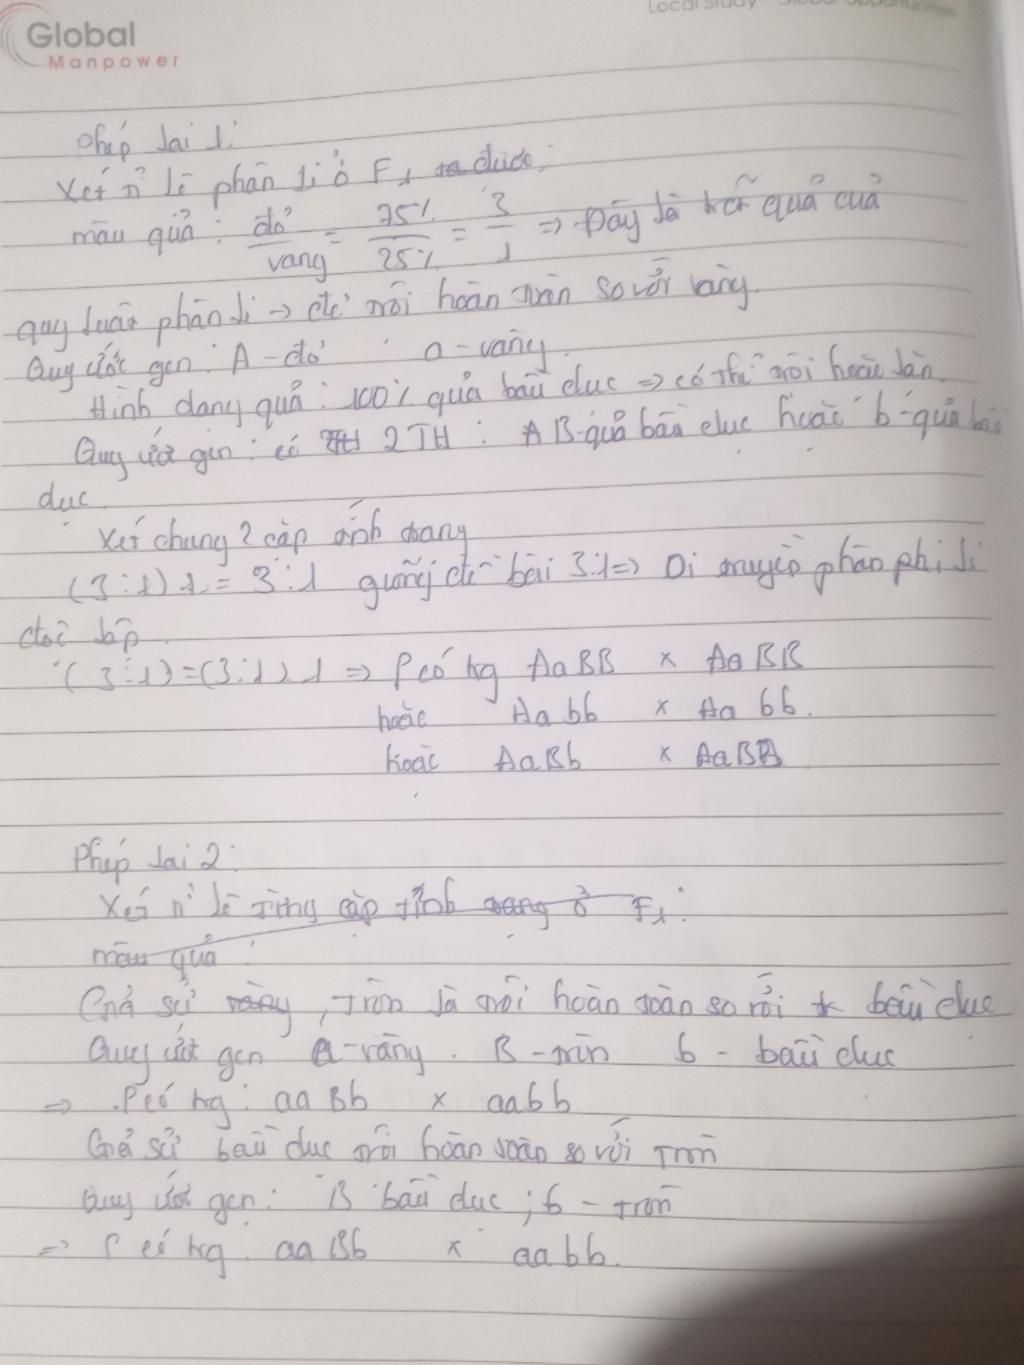 Global
Manpower
Local Study - Global Opportunities
Phép lai 1:
Xét tỉ lệ phân li ở F1 được:
màu quả: đỏ/vang = 75%/25% = 3/1 => Đây là kết quả của
quy luật phân li -> đỏ trội hoàn toàn so với vàng.
Quy ước gen: A - đỏ a - vàng.
Hình dạng quả: 100% quả bầu dục => có thể trội hoặc lặn.
Quy ước gen: có 2TH: B-quả bầu dục hoặc b-quả bầu
dục
Xét chung 2 cặp tính trạng
(3:1) 1 = 3:1 giống đề bài 3:1 => Di truyền phân li
độc lập.
(3:1)=(3:1).1 => P có kg AaBB x AaBB
hoặc Aabb x Aabb.
hoặc AaBb x AaBB
Phép lai 2:
Xét tỉ lệ từng cặp tính trạng ở F1:
màu quả:
Giả sử vàng, tròn là trội hoàn toàn so với bầu dục
Quy ước gen a-vàng. B-tròn b - bầu dục
=> P có kg: aaBb x aabb
Giả sử bầu dục trội hoàn toàn so với tròn
Quy ước gen: B bầu dục; b - tròn
=> P có kg: aaBb x aabb.